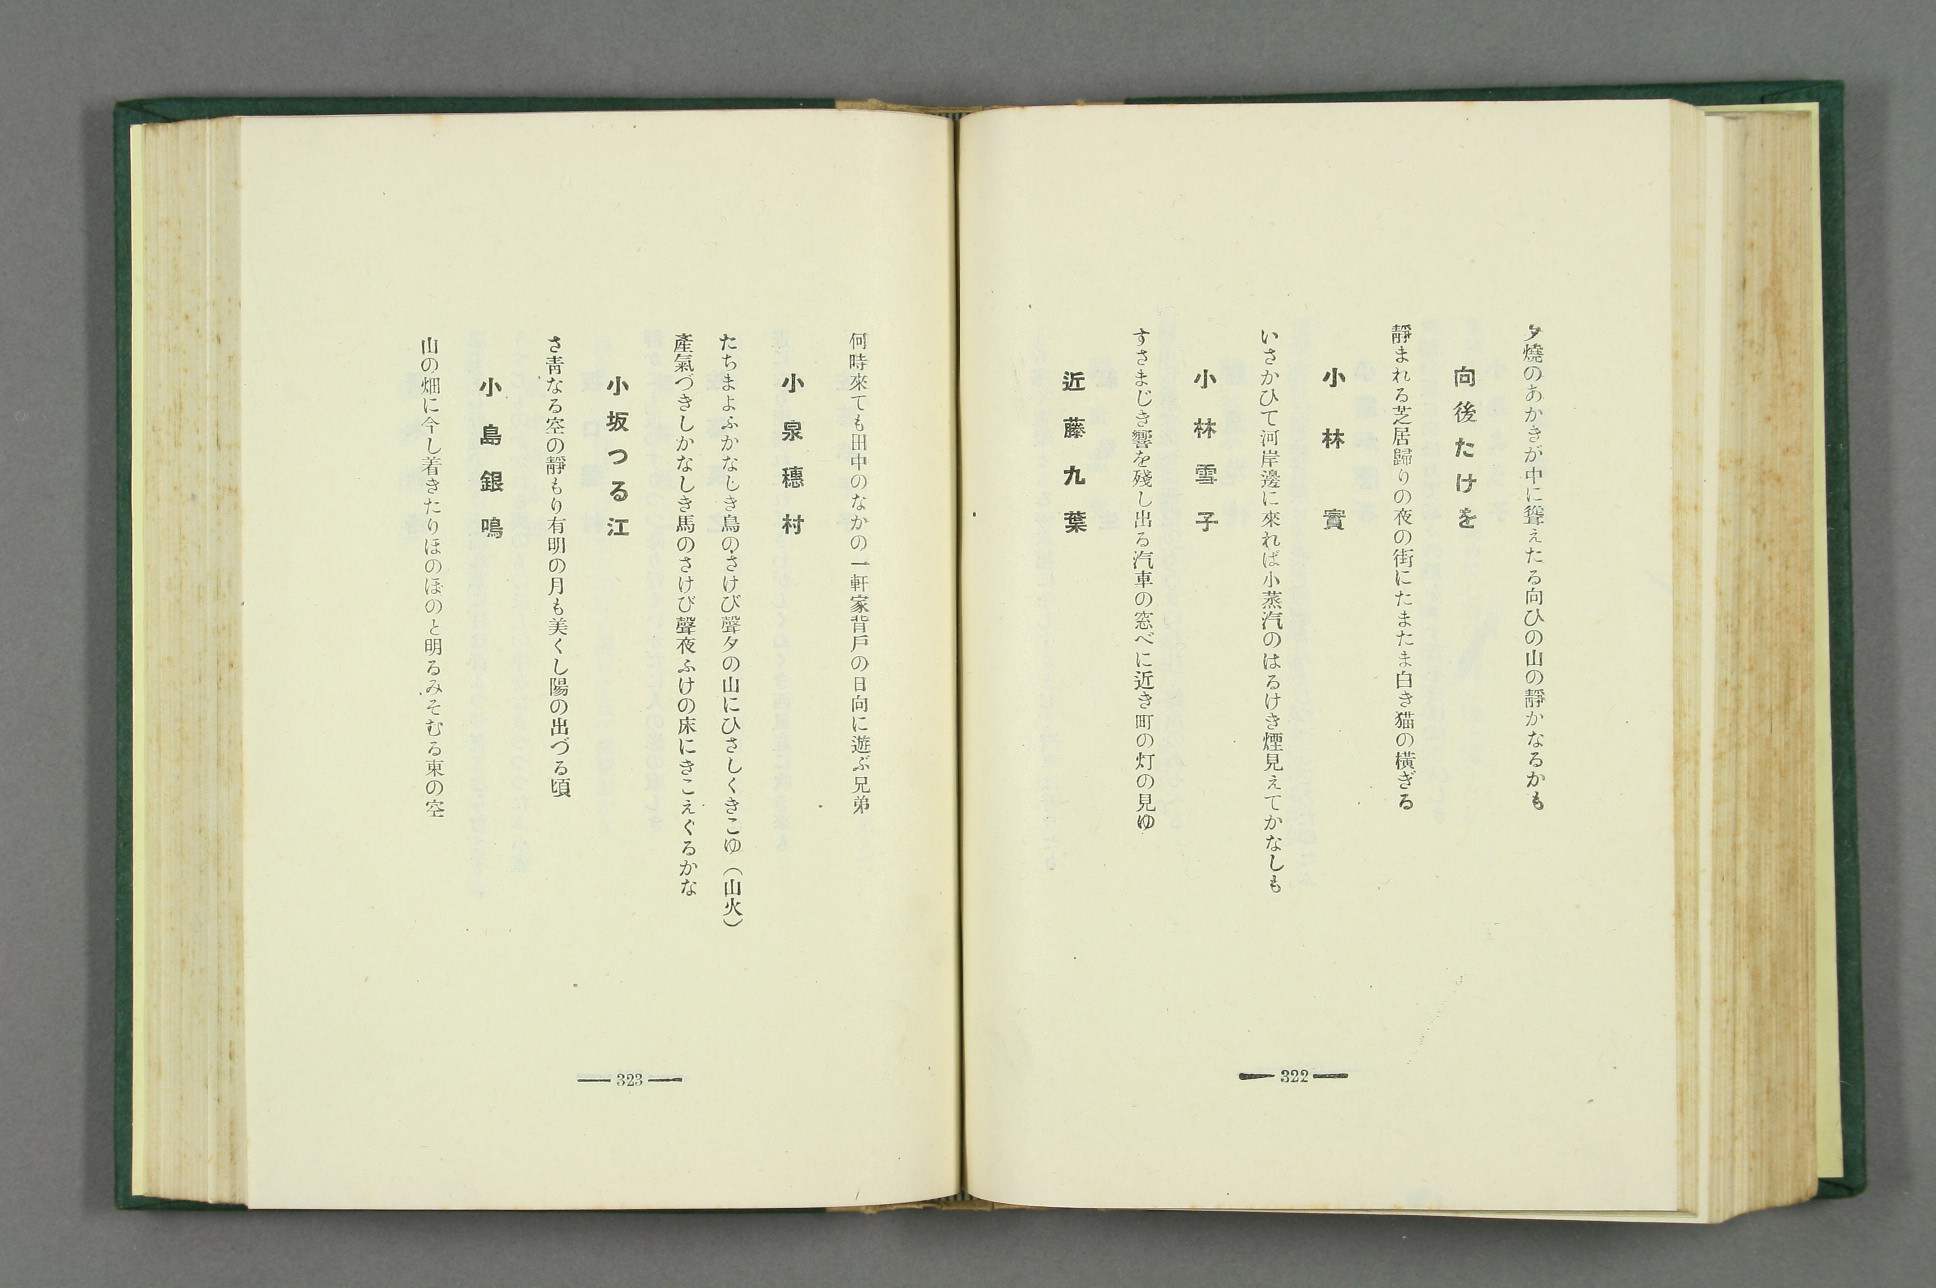 夕燒のあかきが中に聳えたる向ひの山の靜かなるかも
向後たけを
靜まれる芝居歸りの夜の街にたまたま白き猫の橫ぎる
小林實
いさかひて河岸邊に來れば小蒸汽のはるけき煙見えてかなしも
小林雪子
すさまじき響を殘し出る汽車の窓べに近き町の灯の見ゆ
近藤九葉
322
何時來ても田中のなかの一軒家背戶の日向に遊ぶ兄弟
小泉穗村
たちまよふかなしき鳥のさけび聲夕の山にひさしくきこゆ（山火）
產氣づきしかなしき馬のさけび聲夜ふけの床にきこえくるかな
小坂つる江
さ靑なる空の靜もり有明の月も美くし陽の出づる頃
小島銀鳴
山の畑に今し着きたりほのぼのと明るみそむる東の空
323